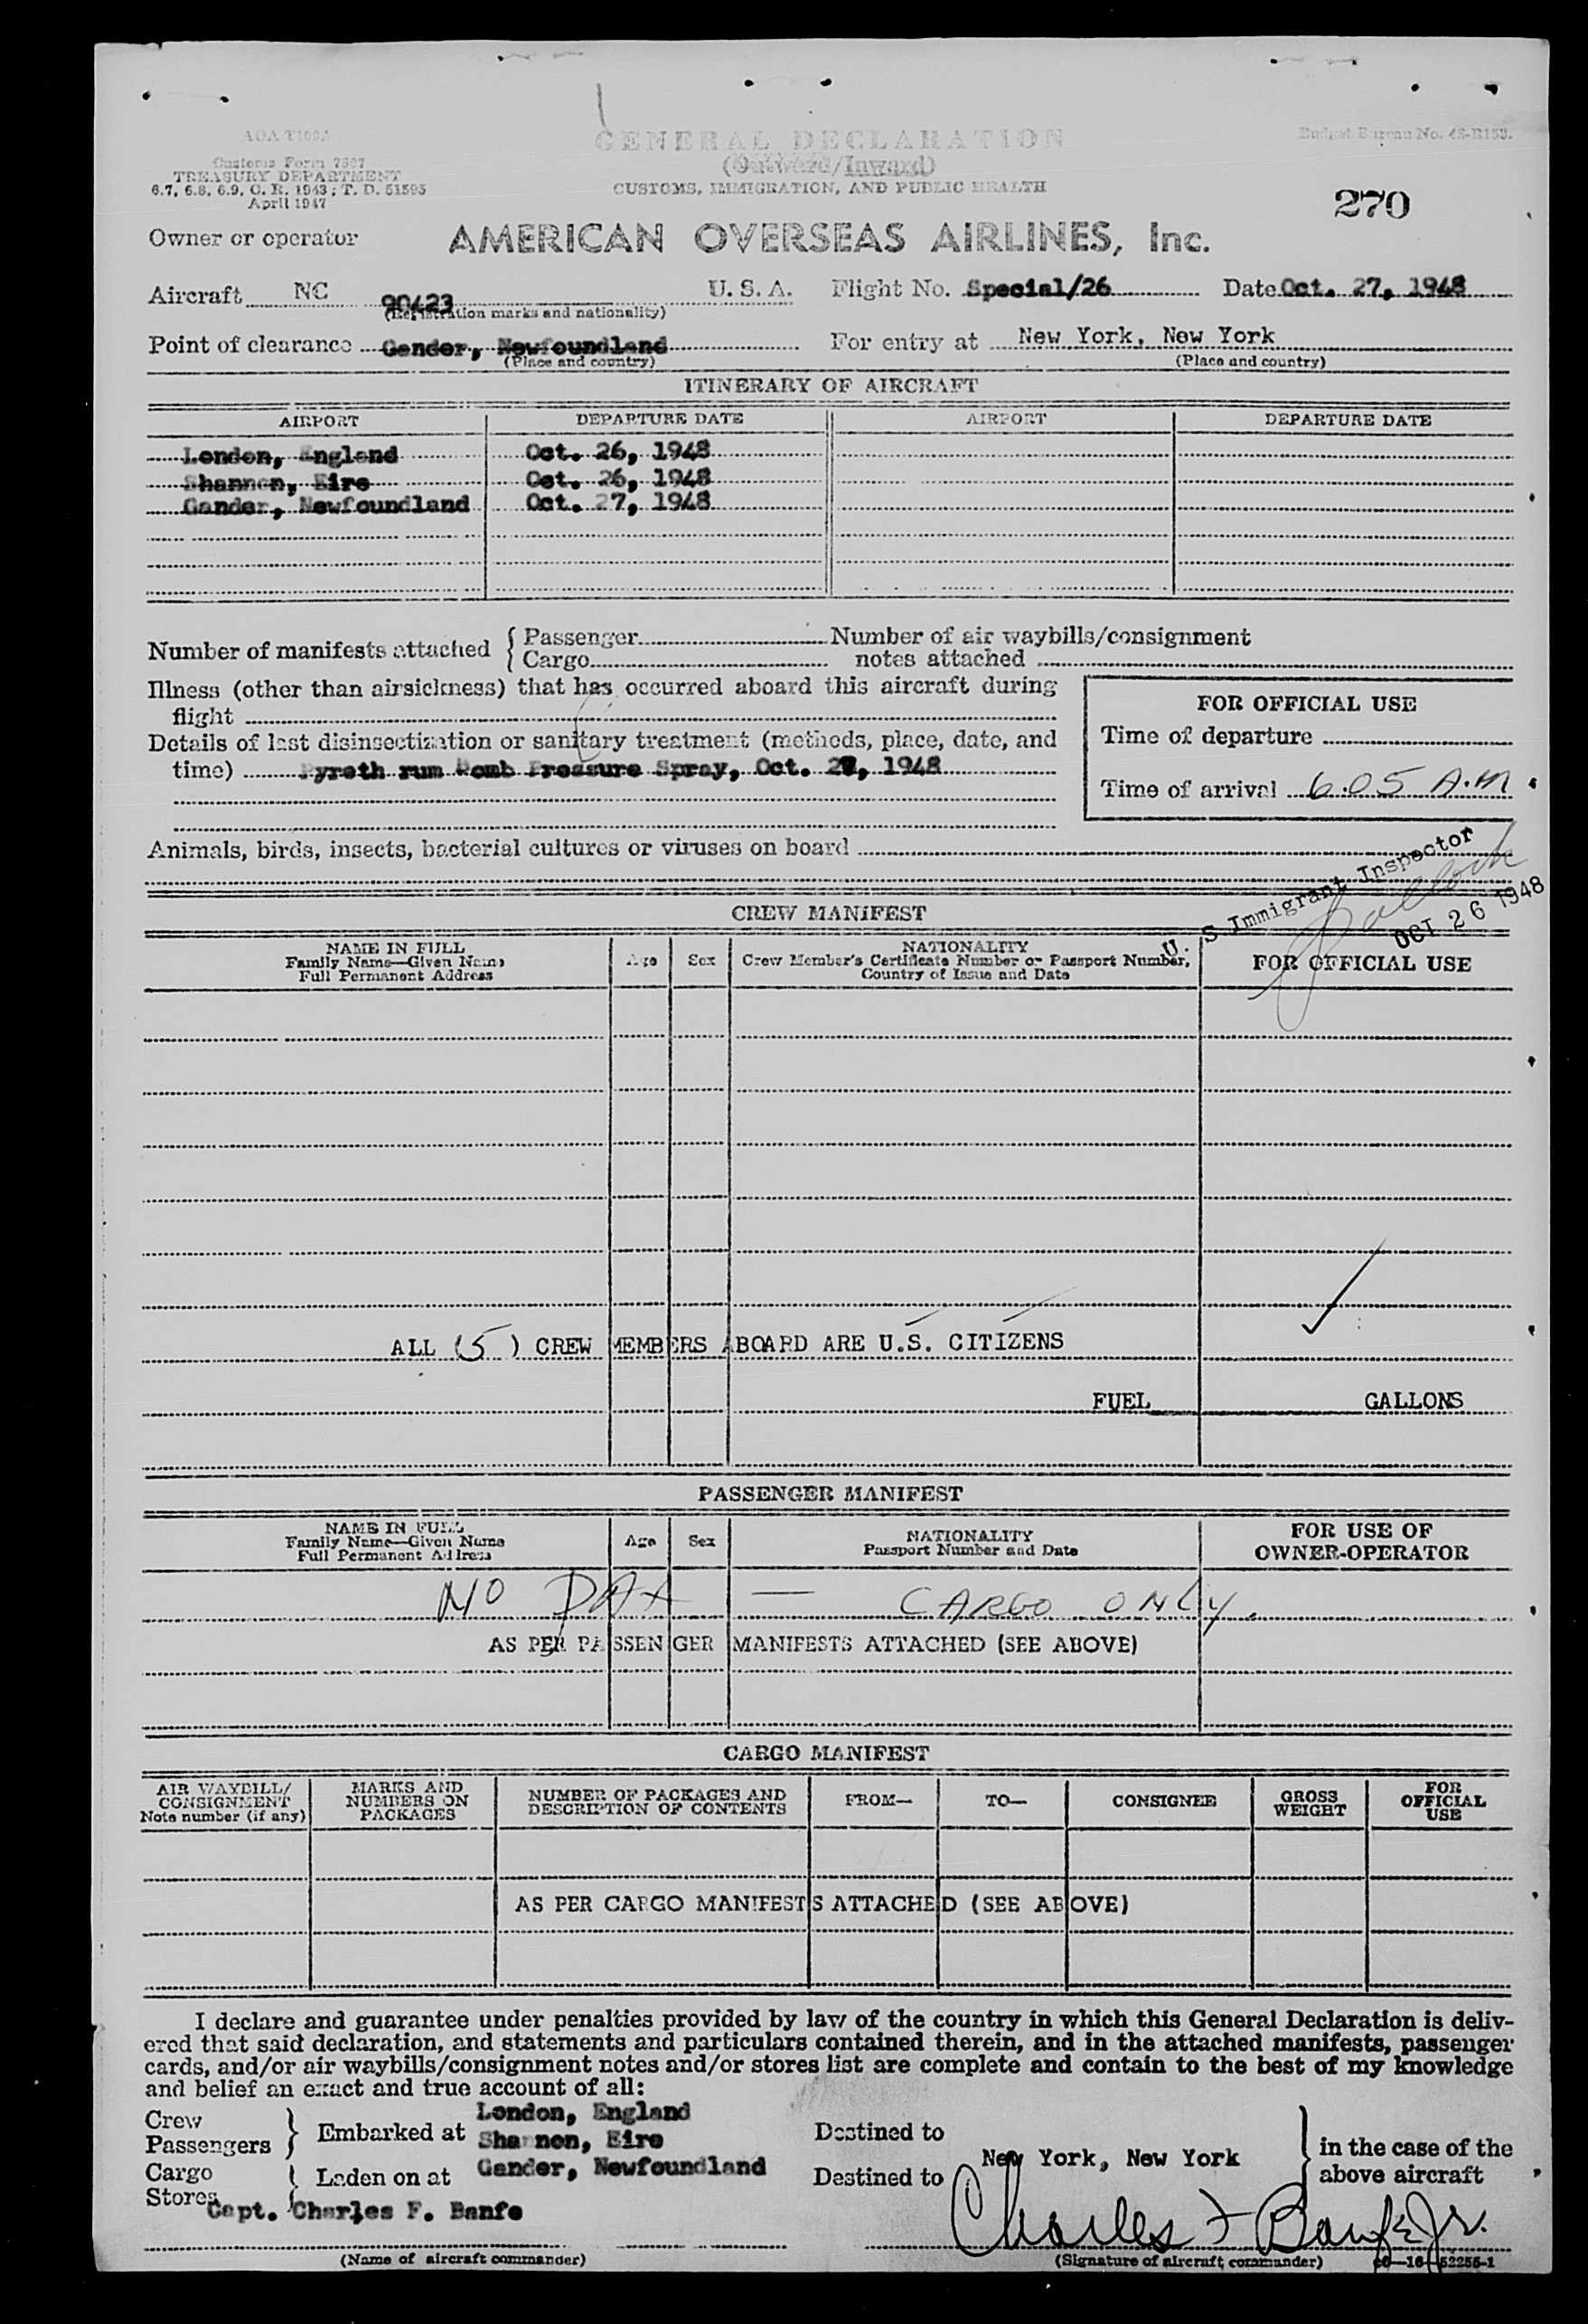 AOA T100A
GENERAL DECLARATION
Budget Bureau No. 48-R153.
Customs Form 7507
(Outward/Inward)
TREASURY DEPARTMENT
CUSTOMS, IMMIGRATION, AND PUBLIC HEALTH
6.7, 6.8, 6.9, C. R. 1943; T. D. 51595
April 1947
270
Owner or operator AMERICAN OVERSEAS AIRLINES, Inc.
Aircraft NC 90423 U. S. A. Flight No. Special/26 Date Oct. 27, 1948
(Registration marks and nationality)
Point of clearance Gander, Newfoundland For entry at New York, New York
(Place and country) (Place and country)
ITINERARY OF AIRCRAFT
AIRPORT DEPARTURE DATE AIRPORT DEPARTURE DATE
London, England Oct. 26, 1948
Shannon, Eire Oct. 26, 1948
Gander, Newfoundland Oct. 27, 1948
Number of manifests attached { Passenger Number of air waybills/consignment
Cargo notes attached
Illness (other than airsickness) that has occurred aboard this aircraft during
flight
FOR OFFICIAL USE
Time of departure
Details of last disinsectization or sanitary treatment (methods, place, date, and
time) Pyreth rum Bomb Pressure Spray, Oct. 27, 1948
Time of arrival 6.05 A.M
Animals, birds, insects, bacterial cultures or viruses on board
U. S Immigrant Inspector
OCT 26 1948
CREW MANIFEST
NAME IN FULL
Family Name—Given Name
Full Permanent Address
Age Sex
NATIONALITY
Crew Member's Certificate Number or Passport Number,
Country of Issue and Date
FOR OFFICIAL USE
ALL (5) CREW MEMBERS ABOARD ARE U.S. CITIZENS
FUEL GALLONS
PASSENGER MANIFEST
NAME IN FULL
Family Name—Given Name
Full Permanent Address
Age Sex
NATIONALITY
Passport Number and Date
FOR USE OF
OWNER-OPERATOR
NO PAX — CARGO ONLY.
AS PER PASSENGER MANIFESTS ATTACHED (SEE ABOVE)
CARGO MANIFEST
AIR WAYBILL/
CONSIGNMENT
Note number (if any)
MARKS AND
NUMBERS ON
PACKAGES
NUMBER OF PACKAGES AND
DESCRIPTION OF CONTENTS
FROM— TO— CONSIGNEE
GROSS
WEIGHT
FOR
OFFICIAL
USE
AS PER CARGO MANIFESTS ATTACHED (SEE ABOVE)
I declare and guarantee under penalties provided by law of the country in which this General Declaration is deliv-
ered that said declaration, and statements and particulars contained therein, and in the attached manifests, passenger
cards, and/or air waybills/consignment notes and/or stores list are complete and contain to the best of my knowledge
and belief an exact and true account of all:
Crew
Passengers } Embarked at London, England
Shannon, Eire
Destined to
Cargo
Stores { Laden on at Gander, Newfoundland
Destined to New York, New York
} in the case of the
above aircraft
Capt. Charles F. Banfe
Charles F Banfe Jr.
(Name of aircraft commander) (Signature of aircraft commander) 16—52255-1